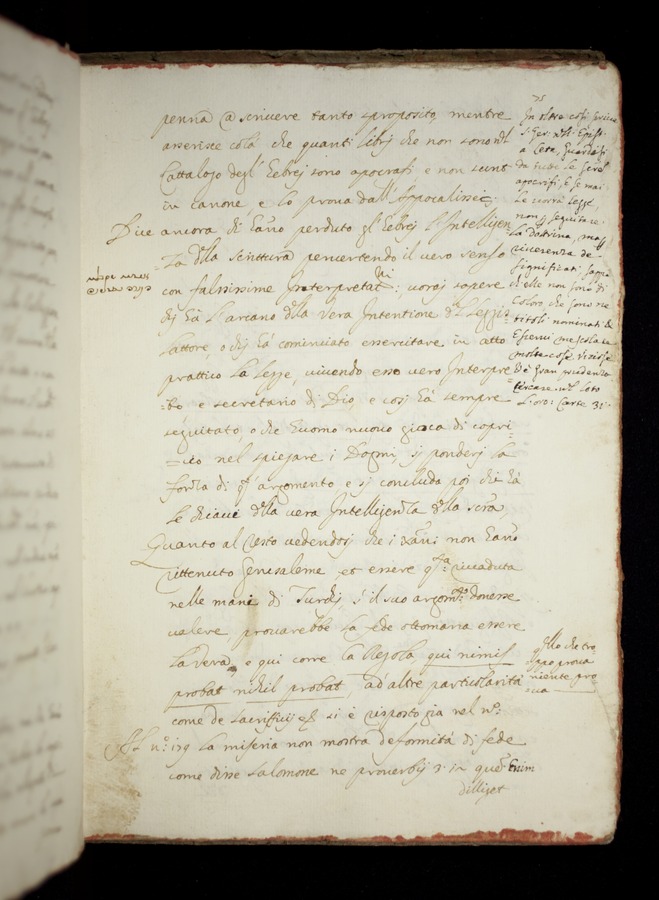 75
penna @ scrivere tanto sproposito, mentre
asserisce colà che quanti libri che non sono nel
Cattalojo degl' Hebrej sono apocrafi e non sunt
in canone, e lo prova dall'Appocalissi
Dice ancora di hano perduto gl' Hebrej l'Intelligen
=za della scrittura pervertendo il vero senso
con falsissime Interpretat.ni; vorej sapere
chj hà l'arcano della vera Intentione del Leggis
=lattore, o chj hà cominciato essercitare in atto
prattico la legge, vivendo esso vero Interpre
=te e secretario di Dio, e cosj hà sempre
seguitato, o che huomo nuovo
nel spiegare i Dogmj, sj ponderj la
forza di q.to argomento e sj concluda poj chi hà
le chiavi della vera Intelligenza della scra
Quanto al resto vedendosj che i xani non hano
rittenuto Jerusaleme, et essere q.ta ricaduta
nelle mani di Turchj, s'il suo argom.to dovesse
valere, provarebbe la fede ottomana essere
la vera, e qui corre la Regola, qui nimis
probat nihil probat, ad altre particolarità
come de sacriffitij etc. si è risposto già nel n.o:
Al n.o: 179 la miseria non mostra deformità di fede
come disse salomone ne proverbij 3. 12 que Enim
dilliget
In oltre cosi scrive
S. Ger: nell' Epist.
a Leta, Guardisi
da tutti le
apocrifi, e se mai
le vorrà legge
non p seguitare
la dottrina, ma p
riverenza de
significati, sapia
che non sono di
coloro che sono ne
titoli nominati &
Esservi mescolate
molte cose vitiose
hà gran prudenza
cercare nel loto
l'oro: Carte 31.
q.llo che tro
ppo prova
niente pro
ova